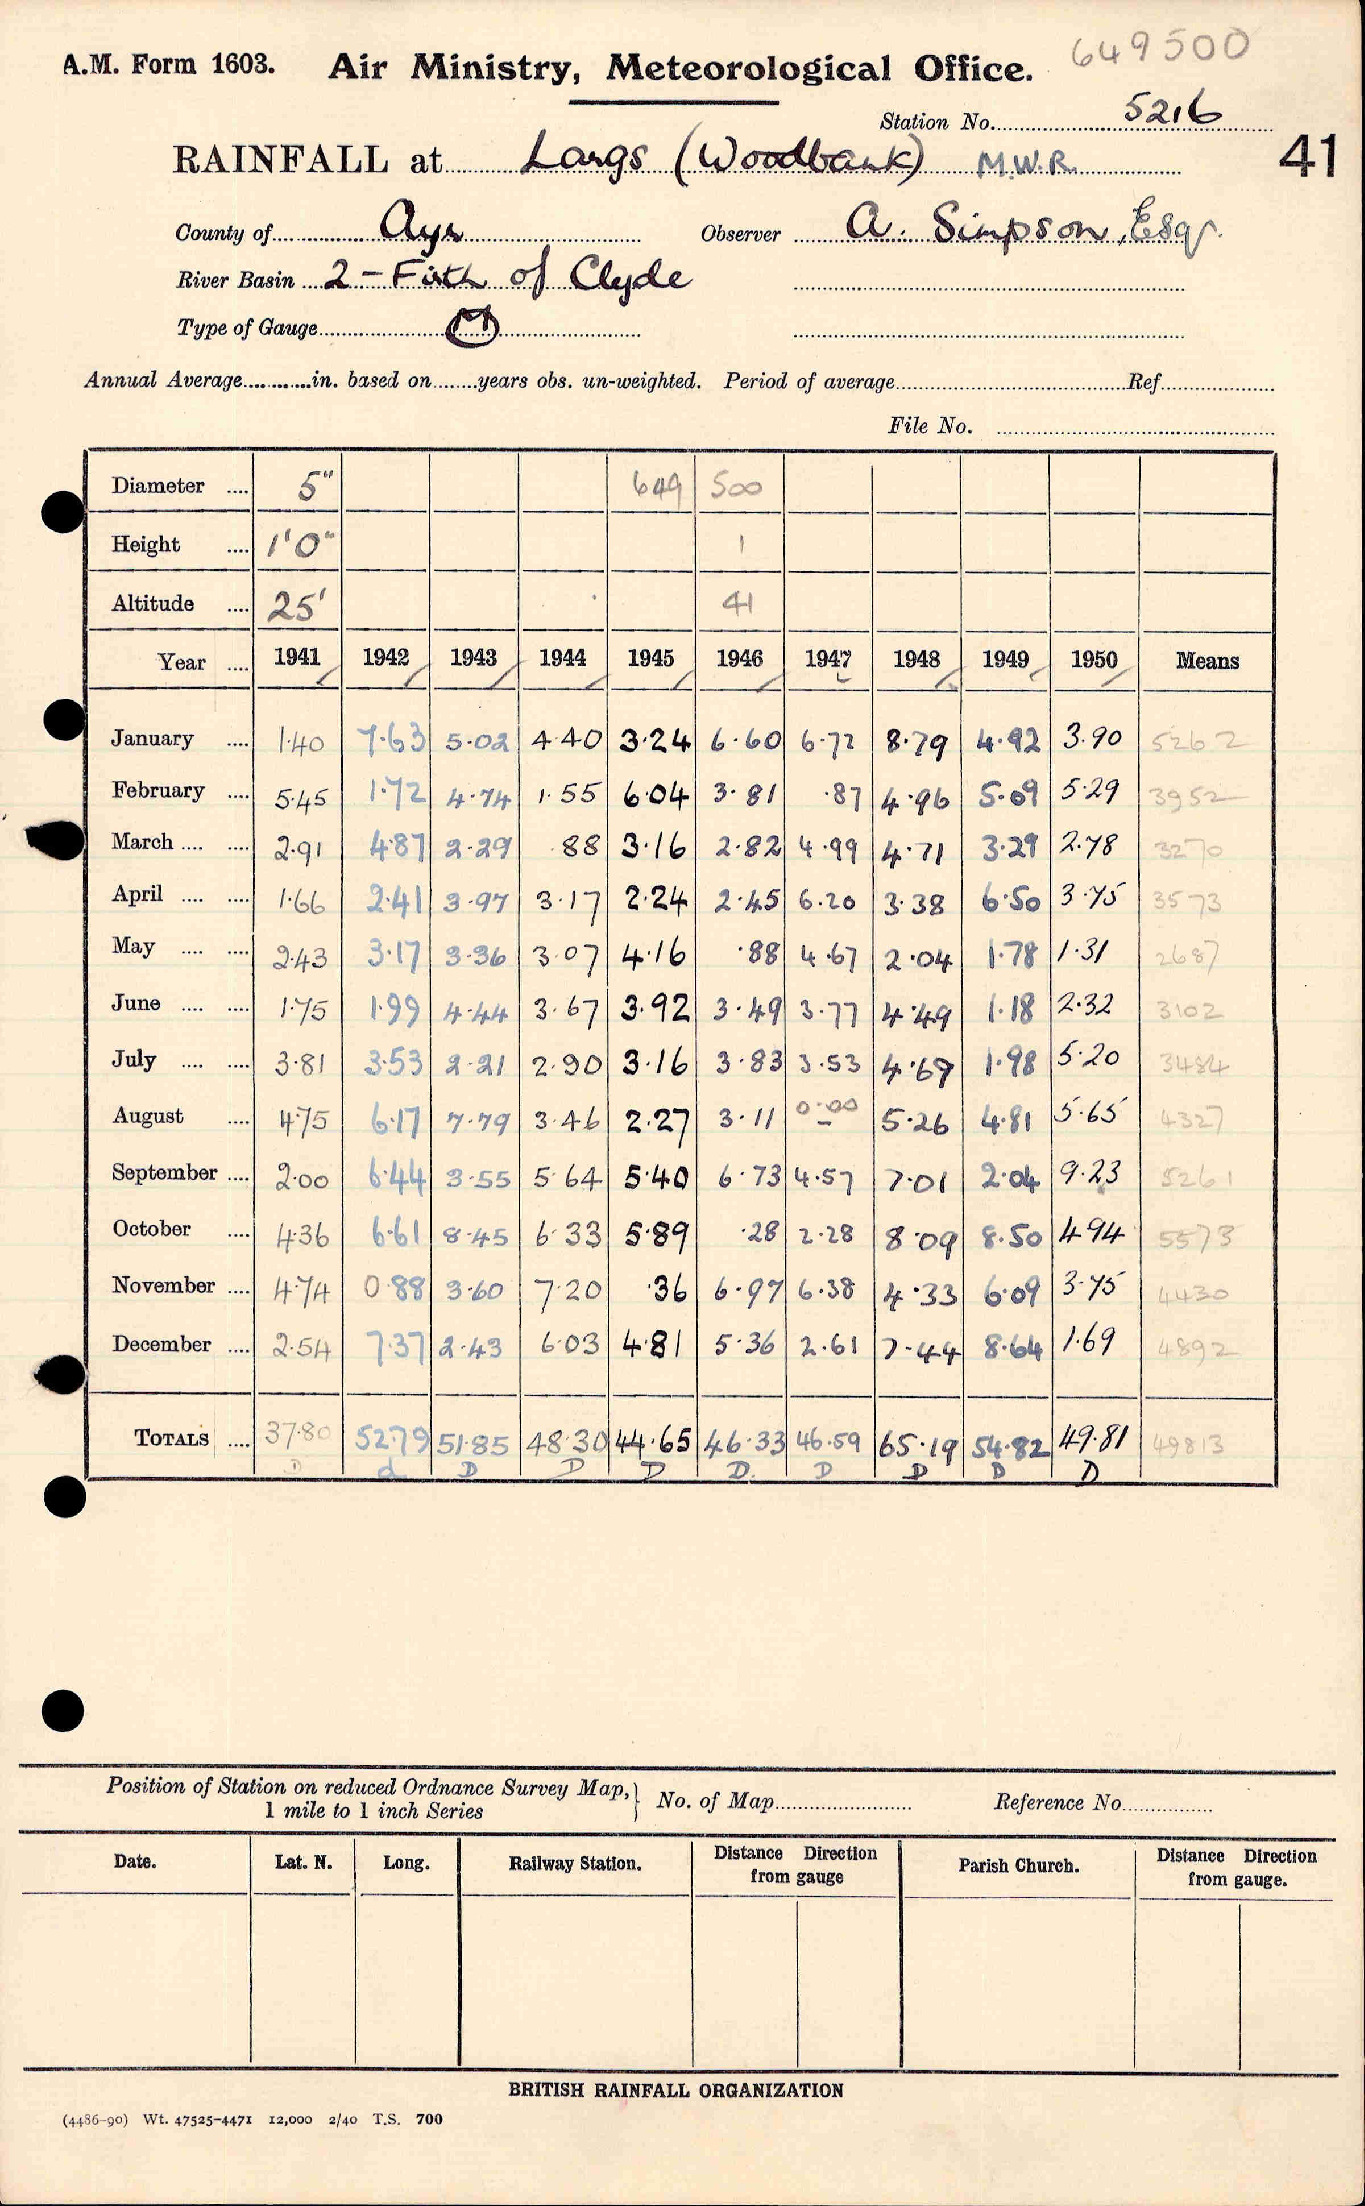 649500
A.M. Form 1603. Air Ministry, Meteorological Office.
Station No. 5216
RAINFALL at Largs (Woodbank) M.W.R. 41
County of Ayr Observer A. Simpson, Esq.
River Basin 2 - Firth of Clyde
Type of Gauge M
Annual Average............in. based on........years obs. un-weighted. Period of average Ref.
File No.
Diameter .... 5" 649 500
Height .... 1'0" 1
Altitude .... 25' 41
Year .... 1941 1942 1943 1944 1945 1946 1947 1948 1949 1950 Means
January .... 1.40 7.63 5.02 4.40 3.24 6.60 6.72 8.79 4.92 3.90 5262
February .... 5.45 1.72 4.74 1.55 6.04 3.81 .87 4.96 5.09 5.29 3952
March .... .... 2.91 4.87 2.29 .88 3.16 2.82 4.99 4.71 3.29 2.78 3270
April .... .... 1.66 2.41 3.97 3.17 2.24 2.45 6.20 3.38 6.50 3.75 3573
May .... .... 2.43 3.17 3.36 3.07 4.16 .88 4.67 2.04 1.78 1.31 2687
June .... .... 1.75 1.99 4.44 3.67 3.92 3.49 3.77 4.49 1.18 2.32 3102
July .... .... 3.81 3.53 2.21 2.90 3.16 3.83 3.53 4.69 1.98 5.20 3484
August .... 4.75 6.17 7.79 3.46 2.27 3.11 0.00 5.26 4.81 5.65 4327
September .... 2.00 6.44 3.55 5.64 5.40 6.73 4.57 7.01 2.04 9.23 5261
October .... 4.36 6.61 8.45 6.33 5.89 .28 2.28 8.09 8.50 4.94 5573
November .... 4.74 0.88 3.60 7.20 .36 6.97 6.38 4.33 6.09 3.75 4430
December .... 2.54 7.37 2.43 6.03 4.81 5.36 2.61 7.44 8.64 1.69 4892
TOTALS .... 37.80 52.79 51.85 48.30 44.65 46.33 46.59 65.19 54.82 49.81 49813
D d D D D D. D D D D
Position of Station on reduced Ordnance Survey Map,
1 mile to 1 inch Series } No. of Map Reference No.
Date. Lat. N. Long. Railway Station. Distance Direction from gauge Parish Church. Distance Direction from gauge.
BRITISH RAINFALL ORGANIZATION
(4486-90) Wt. 47525-4471 12,000 2/40 T.S. 700